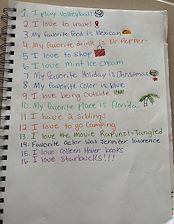 1. I play volleyball
2. I love to travel
3. My favorite food is Mexican
4. My favorite drink is Dr Pepper
5. I love to shop
6. I love Mint Ice Cream
7. My favorite Holiday is Christmas
8. My favorite Color is blue
9. I love being outside
10. My favorite Place is Florida
11. I have 2 siblings
12. I love to go Camping
13. I love the movie Rapunsl-Tangled
14. Favorite actor was Jennifer lawrence
15. I love Colleen Hover books
16. I love Starbucks!!!